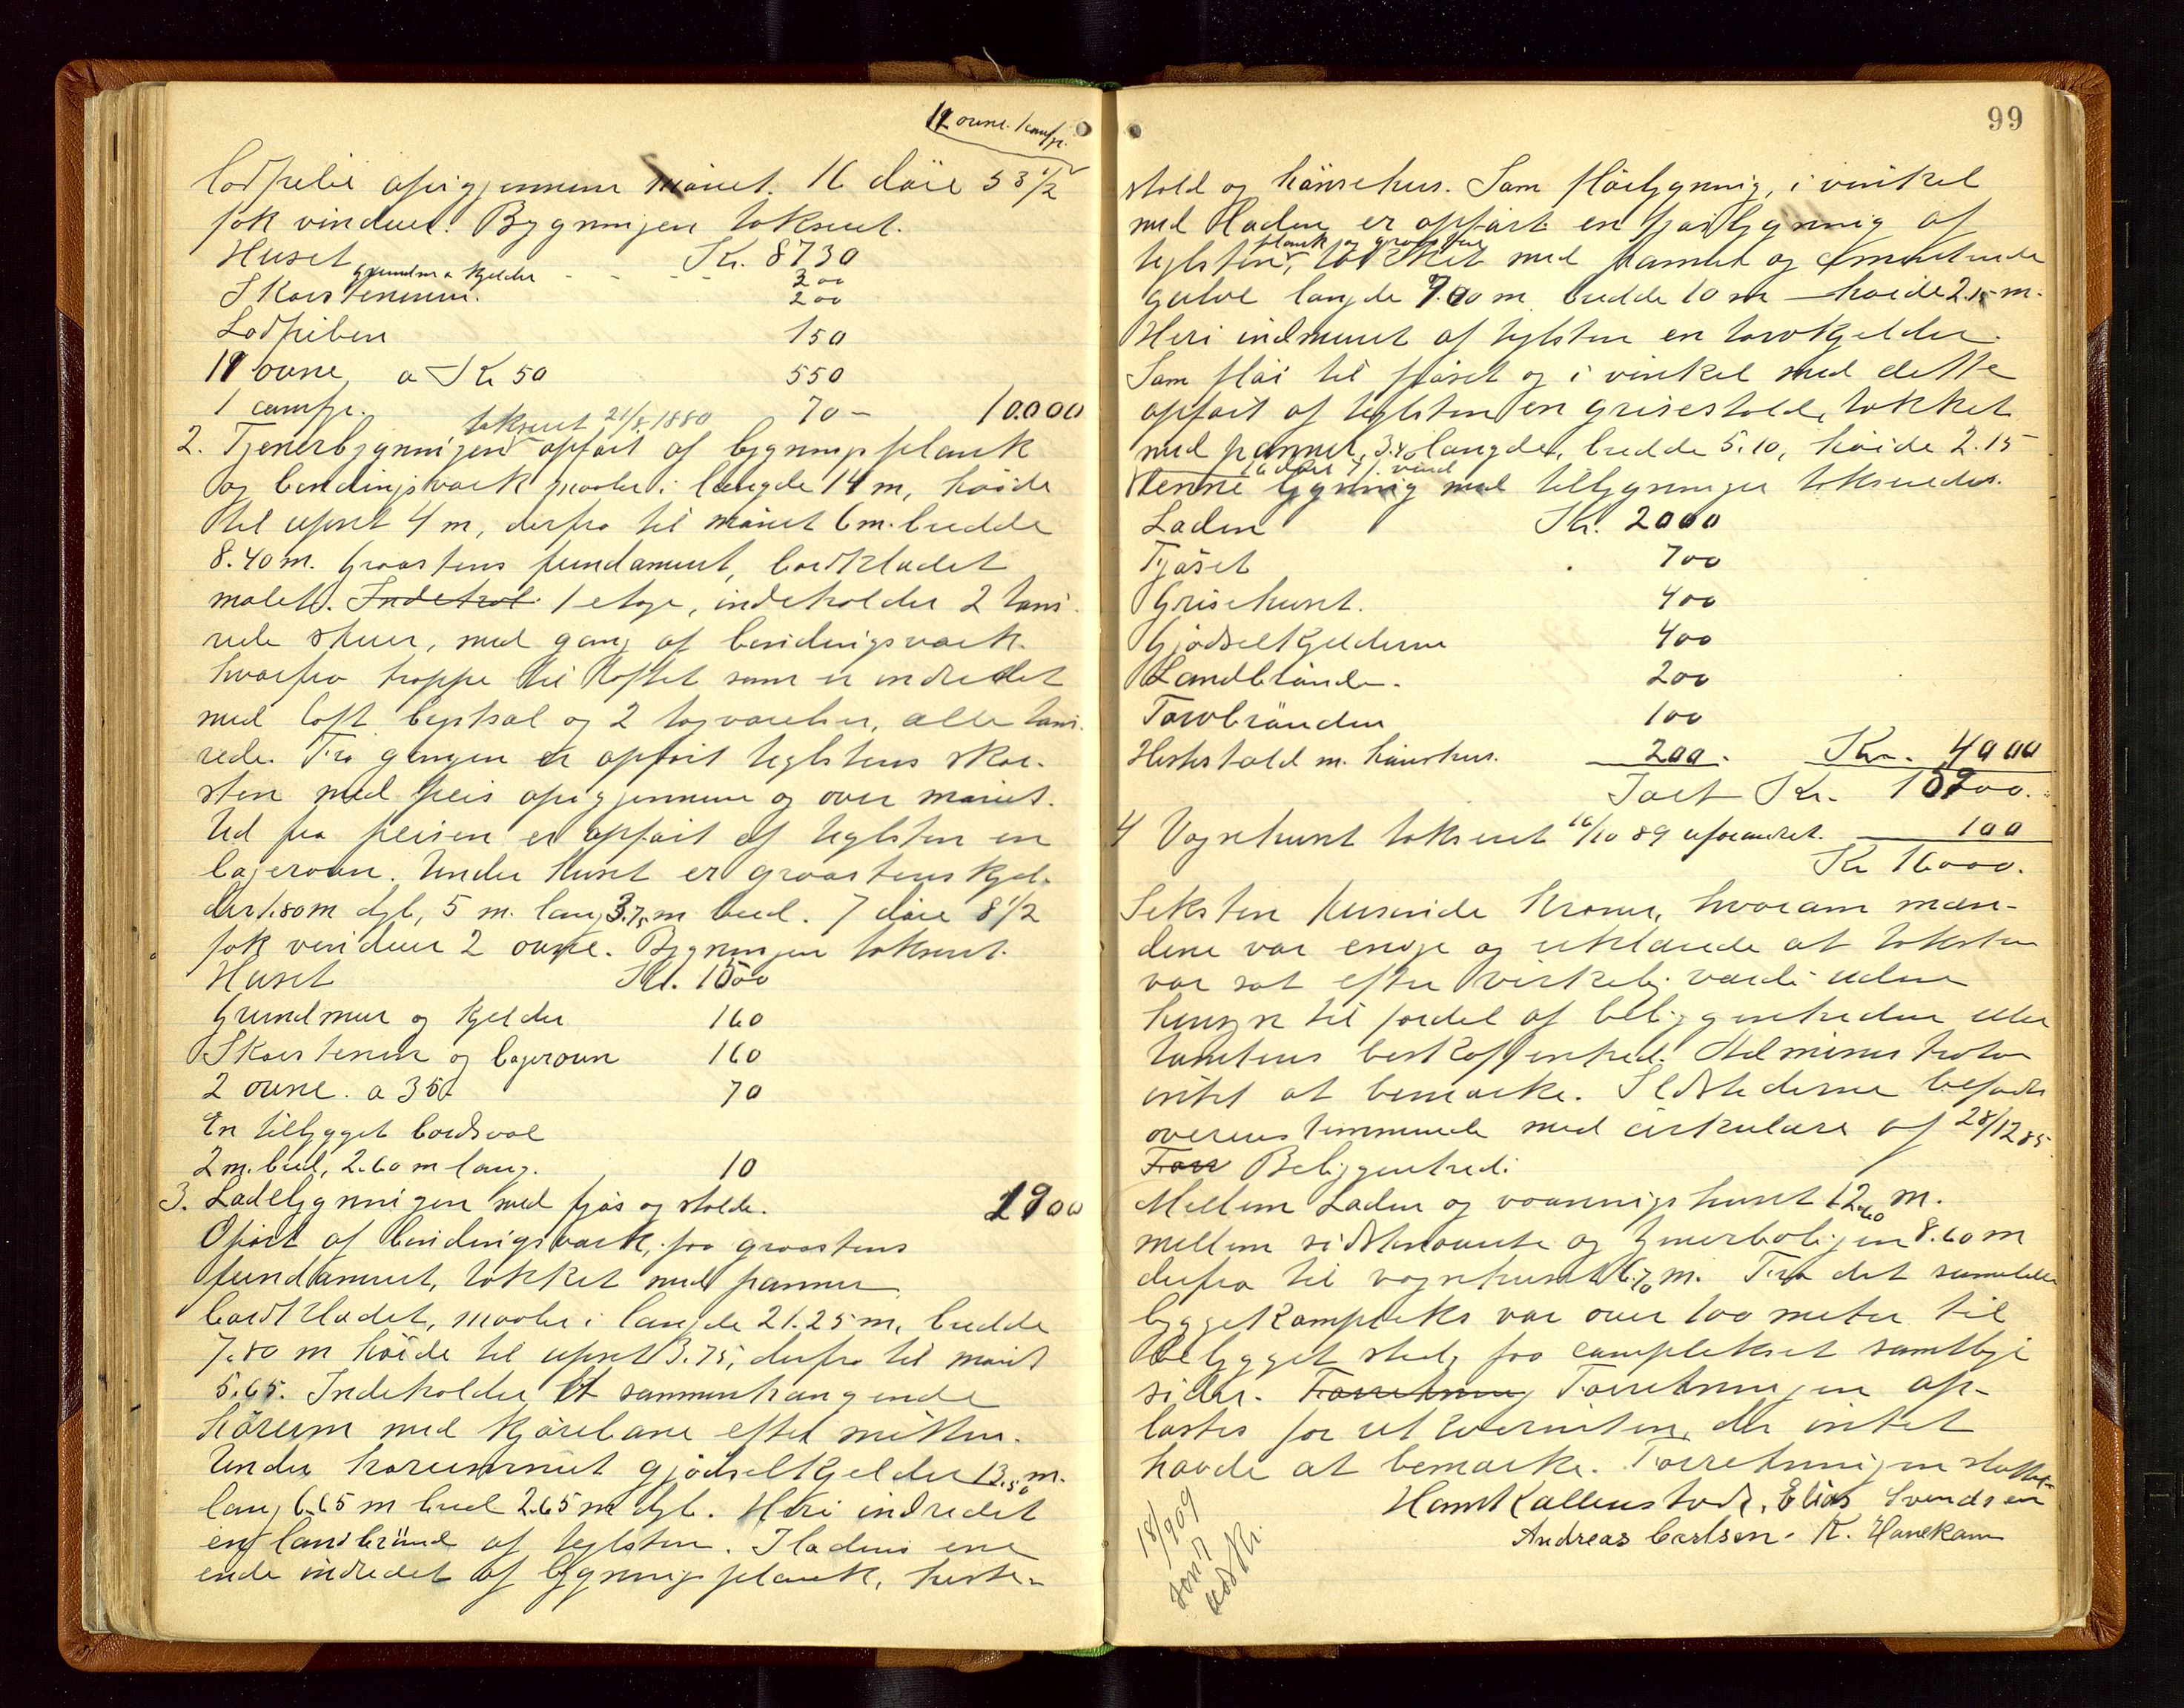 11 ovne. 1 komfyr.
lodpibe opigjennem mönet. 16 döre 53 1/2
fok vinduer. Bygningen takseret.
Huset - - - Kr. 8730
grundm. & kjelder 300
Skorstenene. 200
Lodpiben 150
11 ovne, a Kr 50 550
1 comfyr. 70 - 10.000
takseret 21/8 1880
2. Tjenerbygningen opfört af bygningsplank
og bindingsværk maaler i længde 14 m, höide
til ufset 4 m, derfra til mönet 6 m. bredde
8.40 m. Graastens fundament, bordklædet
malet. Indehol 1 etage, indeholder 2 tapi-
rede stuer, med gang af bindingsværk
hvorfra trappe til loftet som er indredet
med loft bejstsal og 2 tagværelser, alle tapi-
rede. Fra gangen er opfört teglstens skor-
sten med peis opigjennem og over mönet.
Ud fra peisen er opfört af teglsten en
bagerovn. Under huset er graastens kjel-
der 1.80 m dyb, 5 m. lang 3.75 m bred. 7 döre 8 1/2
fok vinduer 2 ovne. Bygningen takseret.
Huset Kr. 1500
Grundmur og kjelder 160
Skorstenen og bagerovn 160
2 ovne. a 35. 70
En tilbygget bordsval
2 m. bred, 2.60 m lang. 10
3. Ladebygningen med fjös og stalde. 1900
Opfört af bindingsværk, paa graastens
fundament, tækket med panner
bordklædet, maaler i længde 21.25 m, bredde
7.80 m höide til ufset 3.75, derfra til mönet
5.65. Indeholder et sammenhængende
hörum med kjörebane efter midten.
Under hörummet gjödselkjelder 13.50 m.
lang 6.65 m bred 2.65 m dyb. Heri indredet
en landbrönd af teglsten. I ladens ene
ende indredet af bygningsplank, heste-
99
stald og hönsehus. Som flöibygning, i vinkel
med laden er opfört en fjösbygning af
teglsten, plank og graasten tækket med panner og cementerede
gulve længde 7.00 m bredde 10 m - höide 2.15 m.
Heri indmuret af teglsten en torvkjelder.
Som flöi til fjöset og i vinkel med dette
opfört af teglsten en grisestald, tækket
med panner, 3.80 længde, bredde 5.10, höide 2.15
Denne bygning med tilbygninger takseredes.
Laden Kr. 2000
Fjöset 700
Grisehuset. 400
Gjödselkjelderne 400
Landbrönde. 200
Torvbrönden 100
Hestestald m. hönsehus. 200. Kr. 4000
Ialt Kr. 15900.
4 Vognhuset takseret 16/10 89 uforandret. 100
Kr 16000.
Seksten tusinde kroner, hvorom mæn-
dene var enige og erklærede at taksten
var sat efter virkelig værdi uden
hensyn til fordel af beliggenheden eller
tomtens beskaffenhed. Administrator
intet at bemærke. Ildstederne befandtes
overensstemmende med cirkulære af 28/12 85.
Forr Beliggenhed:
Mellem Laden og vaaningshuset 12.60 m.
mellem sidstnævnte og tjenerboligen 8.60 m
derfra til vognhuset 6.70 m. Fra det samlede
byggekompleks var over 100 meter til
bebygget sted, paa complekset samtlige
sider. Forretning Forretningen op-
læstes for rekvirenten, der intet
havde at bemærke. Forretningen sluttet.
Hans Kallenstvedt, Elias Svendsen
Andreas Carlsen. K. Hanekam
18/9 09